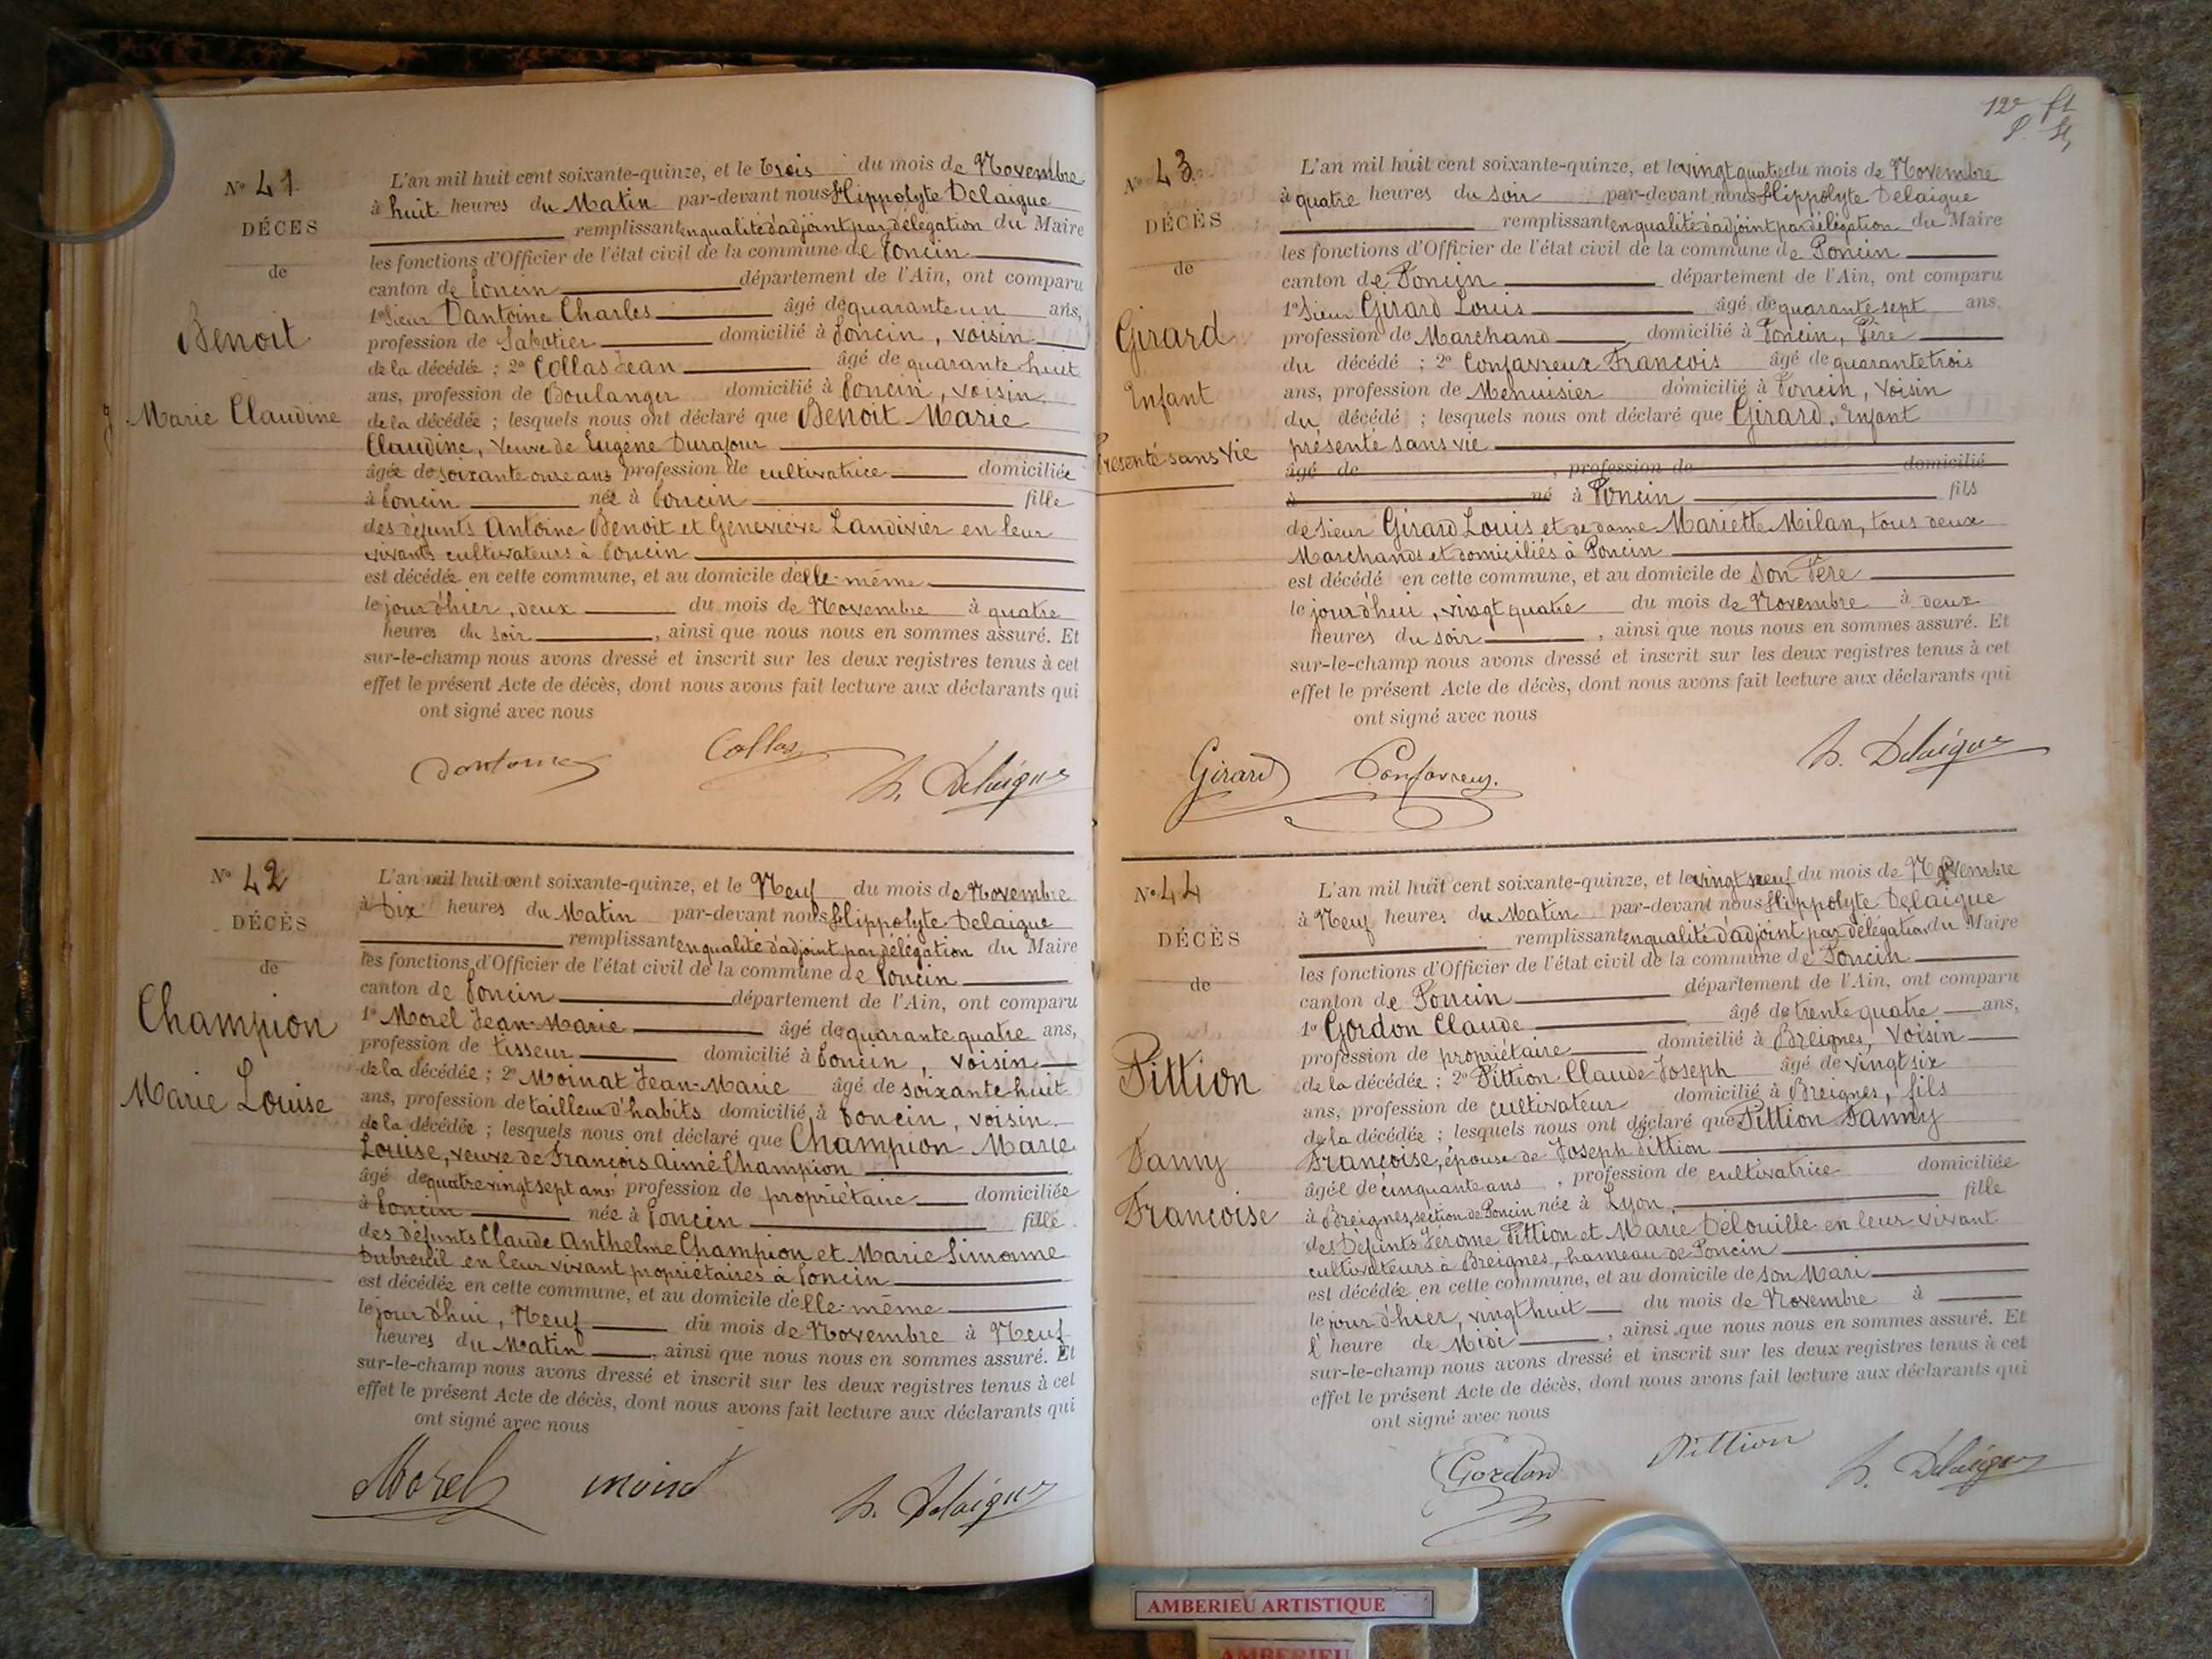 Nº 41
DÉCÈS
de
Benoit
Marie Claudine
L'an mil huit cent soixante-quinze, et le trois du mois de Novembre
à huit heures du Matin par-devant nous Hippolyte Delaigue
remplissant en qualité d'adjoint par délégation du Maire
les fonctions d'Officier de l'état civil de la commune de Poncin
canton de Poncin département de l'Ain, ont comparu
1º Sieur Dantoine Charles âgé de quarante un ans,
profession de Sabotier domicilié à Poncin, voisin
de la décédée ; 2º Collas Jean âgé de quarante huit
ans, profession de Boulanger domicilié à Poncin, voisin
de la décédée ; lesquels nous ont déclaré que Benoit Marie
Claudine, Veuve de Eugène Durafour
âgée de soixante onze ans profession de cultivatrice domiciliée
à Poncin née à Poncin fille
des défunts Antoine Benoit et Geneviève Landivier en leur
vivants cultivateurs à Poncin
est décédée en cette commune, et au domicile d'elle-même
le jour d'hier, deux du mois de Novembre à quatre
heures du soir, ainsi que nous nous en sommes assuré. Et
sur-le-champ nous avons dressé et inscrit sur les deux registres tenus à cet
effet le présent Acte de décès, dont nous avons fait lecture aux déclarants qui
ont signé avec nous
Dantoine Collas h. Delaigue
Nº 42
DÉCÈS
de
Champion
Marie Louise
L'an mil huit cent soixante-quinze, et le Neuf du mois de Novembre
à Dix heures du Matin par-devant nous Hippolyte Delaigue
remplissant en qualité d'adjoint par délégation du Maire
les fonctions d'Officier de l'état civil de la commune de Poncin
canton de Poncin département de l'Ain, ont comparu
1º Morel Jean-Marie âgé de quarante quatre ans,
profession de tisseur domicilié à Poncin, voisin
de la décédée ; 2º Moinat Jean-Marie âgé de soixante huit
ans, profession de tailleur d'habits domicilié à Poncin, voisin
de la décédée ; lesquels nous ont déclaré que Champion Marie
Louise, veuve de François Aimé Champion
âgé de quatre vingt sept ans profession de propriétaire domiciliée
à Poncin née à Poncin fille
des défunts Claude Anthelme Champion et Marie Simonne
Dubreuil en leur vivant propriétaires à Poncin
est décédée en cette commune, et au domicile d'elle-même
le jour d'hui, Neuf du mois de Novembre à Neuf
heures du Matin, ainsi que nous nous en sommes assuré. Et
sur-le-champ nous avons dressé et inscrit sur les deux registres tenus à cet
effet le présent Acte de décès, dont nous avons fait lecture aux déclarants qui
ont signé avec nous
Morel h. Delaigue
Nº 43
DÉCÈS
de
Girard
Enfant
Présenté sans vie
L'an mil huit cent soixante-quinze, et le vingt quatre du mois de Novembre
à quatre heures du soir par-devant nous Hippolyte Delaigue
remplissant en qualité d'adjoint par délégation du Maire
les fonctions d'Officier de l'état civil de la commune de Poncin
canton de Poncin département de l'Ain, ont comparu
1º Sieur Girard Louis âgé de quarante sept ans,
profession de Marchand domicilié à Poncin, Père
du décédé ; 2º Confavreux François âgé de quarante trois
ans, profession de Menuisier domicilié à Poncin, Voisin
du décédé ; lesquels nous ont déclaré que Girard, Enfant
présenté sans vie
âgé de , profession de domicilié
à né à Poncin fils
de Sieur Girard Louis et de dame Mariette Milan, tous deux
Marchands et domiciliés à Poncin
est décédé en cette commune, et au domicile de son Père
le jour d'hui, vingt quatre du mois de Novembre à deux
heures du soir, ainsi que nous nous en sommes assuré. Et
sur-le-champ nous avons dressé et inscrit sur les deux registres tenus à cet
effet le présent Acte de décès, dont nous avons fait lecture aux déclarants qui
ont signé avec nous
Girard Confavreux h. Delaigue
Nº 44
DÉCÈS
de
Pittion
Fanny
Françoise
L'an mil huit cent soixante-quinze, et le vingt neuf du mois de Novembre
à Neuf heures du Matin par-devant nous Hippolyte Delaigue
remplissant en qualité d'adjoint par délégation du Maire
les fonctions d'Officier de l'état civil de la commune de Poncin
canton de Poncin département de l'Ain, ont comparu
1º Gordon Claude âgé de trente quatre ans,
profession de propriétaire domicilié à Breignes, Voisin
de la décédée ; 2º Pittion Claude Joseph âgé de vingt six
ans, profession de cultivateur domicilié à Breignes, fils
de la décédée ; lesquels nous ont déclaré que Pittion Fanny
Françoise, épouse de Joseph Pittion
âgée de cinquante ans, profession de cultivatrice domiciliée
à Breignes, section de Poncin née à Lyon fille
des Défunts Jérome Pittion et Marie Délouille en leur vivant
cultivateurs à Breignes, hameau de Poncin
est décédée en cette commune, et au domicile de son Mari
le jour d'hier, vingt huit du mois de Novembre à
l'heure de Midi, ainsi que nous nous en sommes assuré. Et
sur-le-champ nous avons dressé et inscrit sur les deux registres tenus à cet
effet le présent Acte de décès, dont nous avons fait lecture aux déclarants qui
ont signé avec nous
Gordon Pittion h. Delaigue
AMBERIEU ARTISTIQUE
AMBERIEU